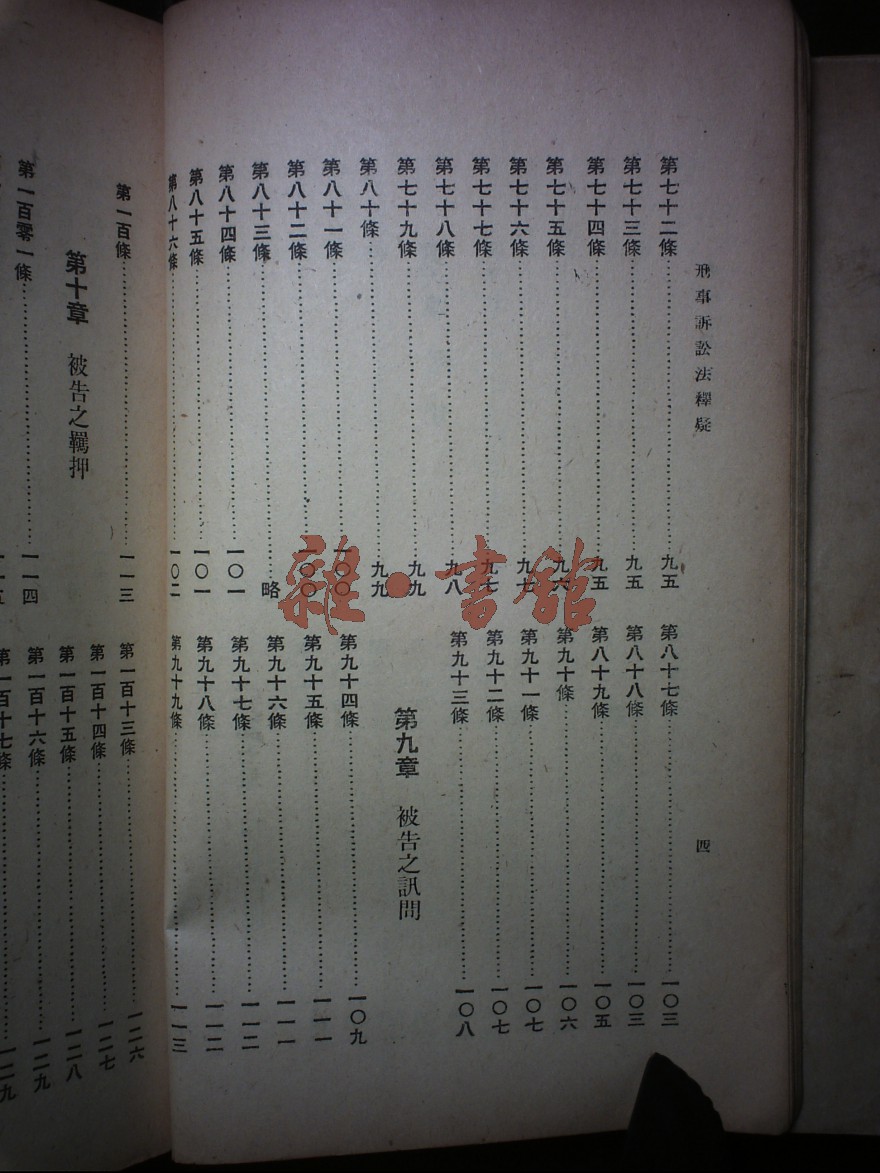 刑事訴訟法釋疑
四
第七十二條……九五
第七十三條……九五
第七十四條……九五
第七十五條……九六
第七十六條……九七
第七十七條……九七
第七十八條……九八
第七十九條……九九
第八十條……九九
第八十一條……一〇〇
第八十二條……一〇〇
第八十三條……略
第八十四條……一〇一
第八十五條……一〇一
第八十六條……一〇二
第八十七條……一〇三
第八十八條……一〇三
第八十九條……一〇五
第九十條……一〇六
第九十一條……一〇七
第九十二條……一〇七
第九十三條……一〇八
第九章 被告之訊問
第九十四條……一〇九
第九十五條……一一一
第九十六條……一一一
第九十七條……一一二
第九十八條……一一二
第九十九條……一一三
第一百條……一一三
第十章 被告之羈押
第一百零一條……一一四
第一百十三條……一二六
第一百十四條……一二七
第一百十五條……一二八
第一百十六條……一二九
第一百十七條……一二九
雜·書館